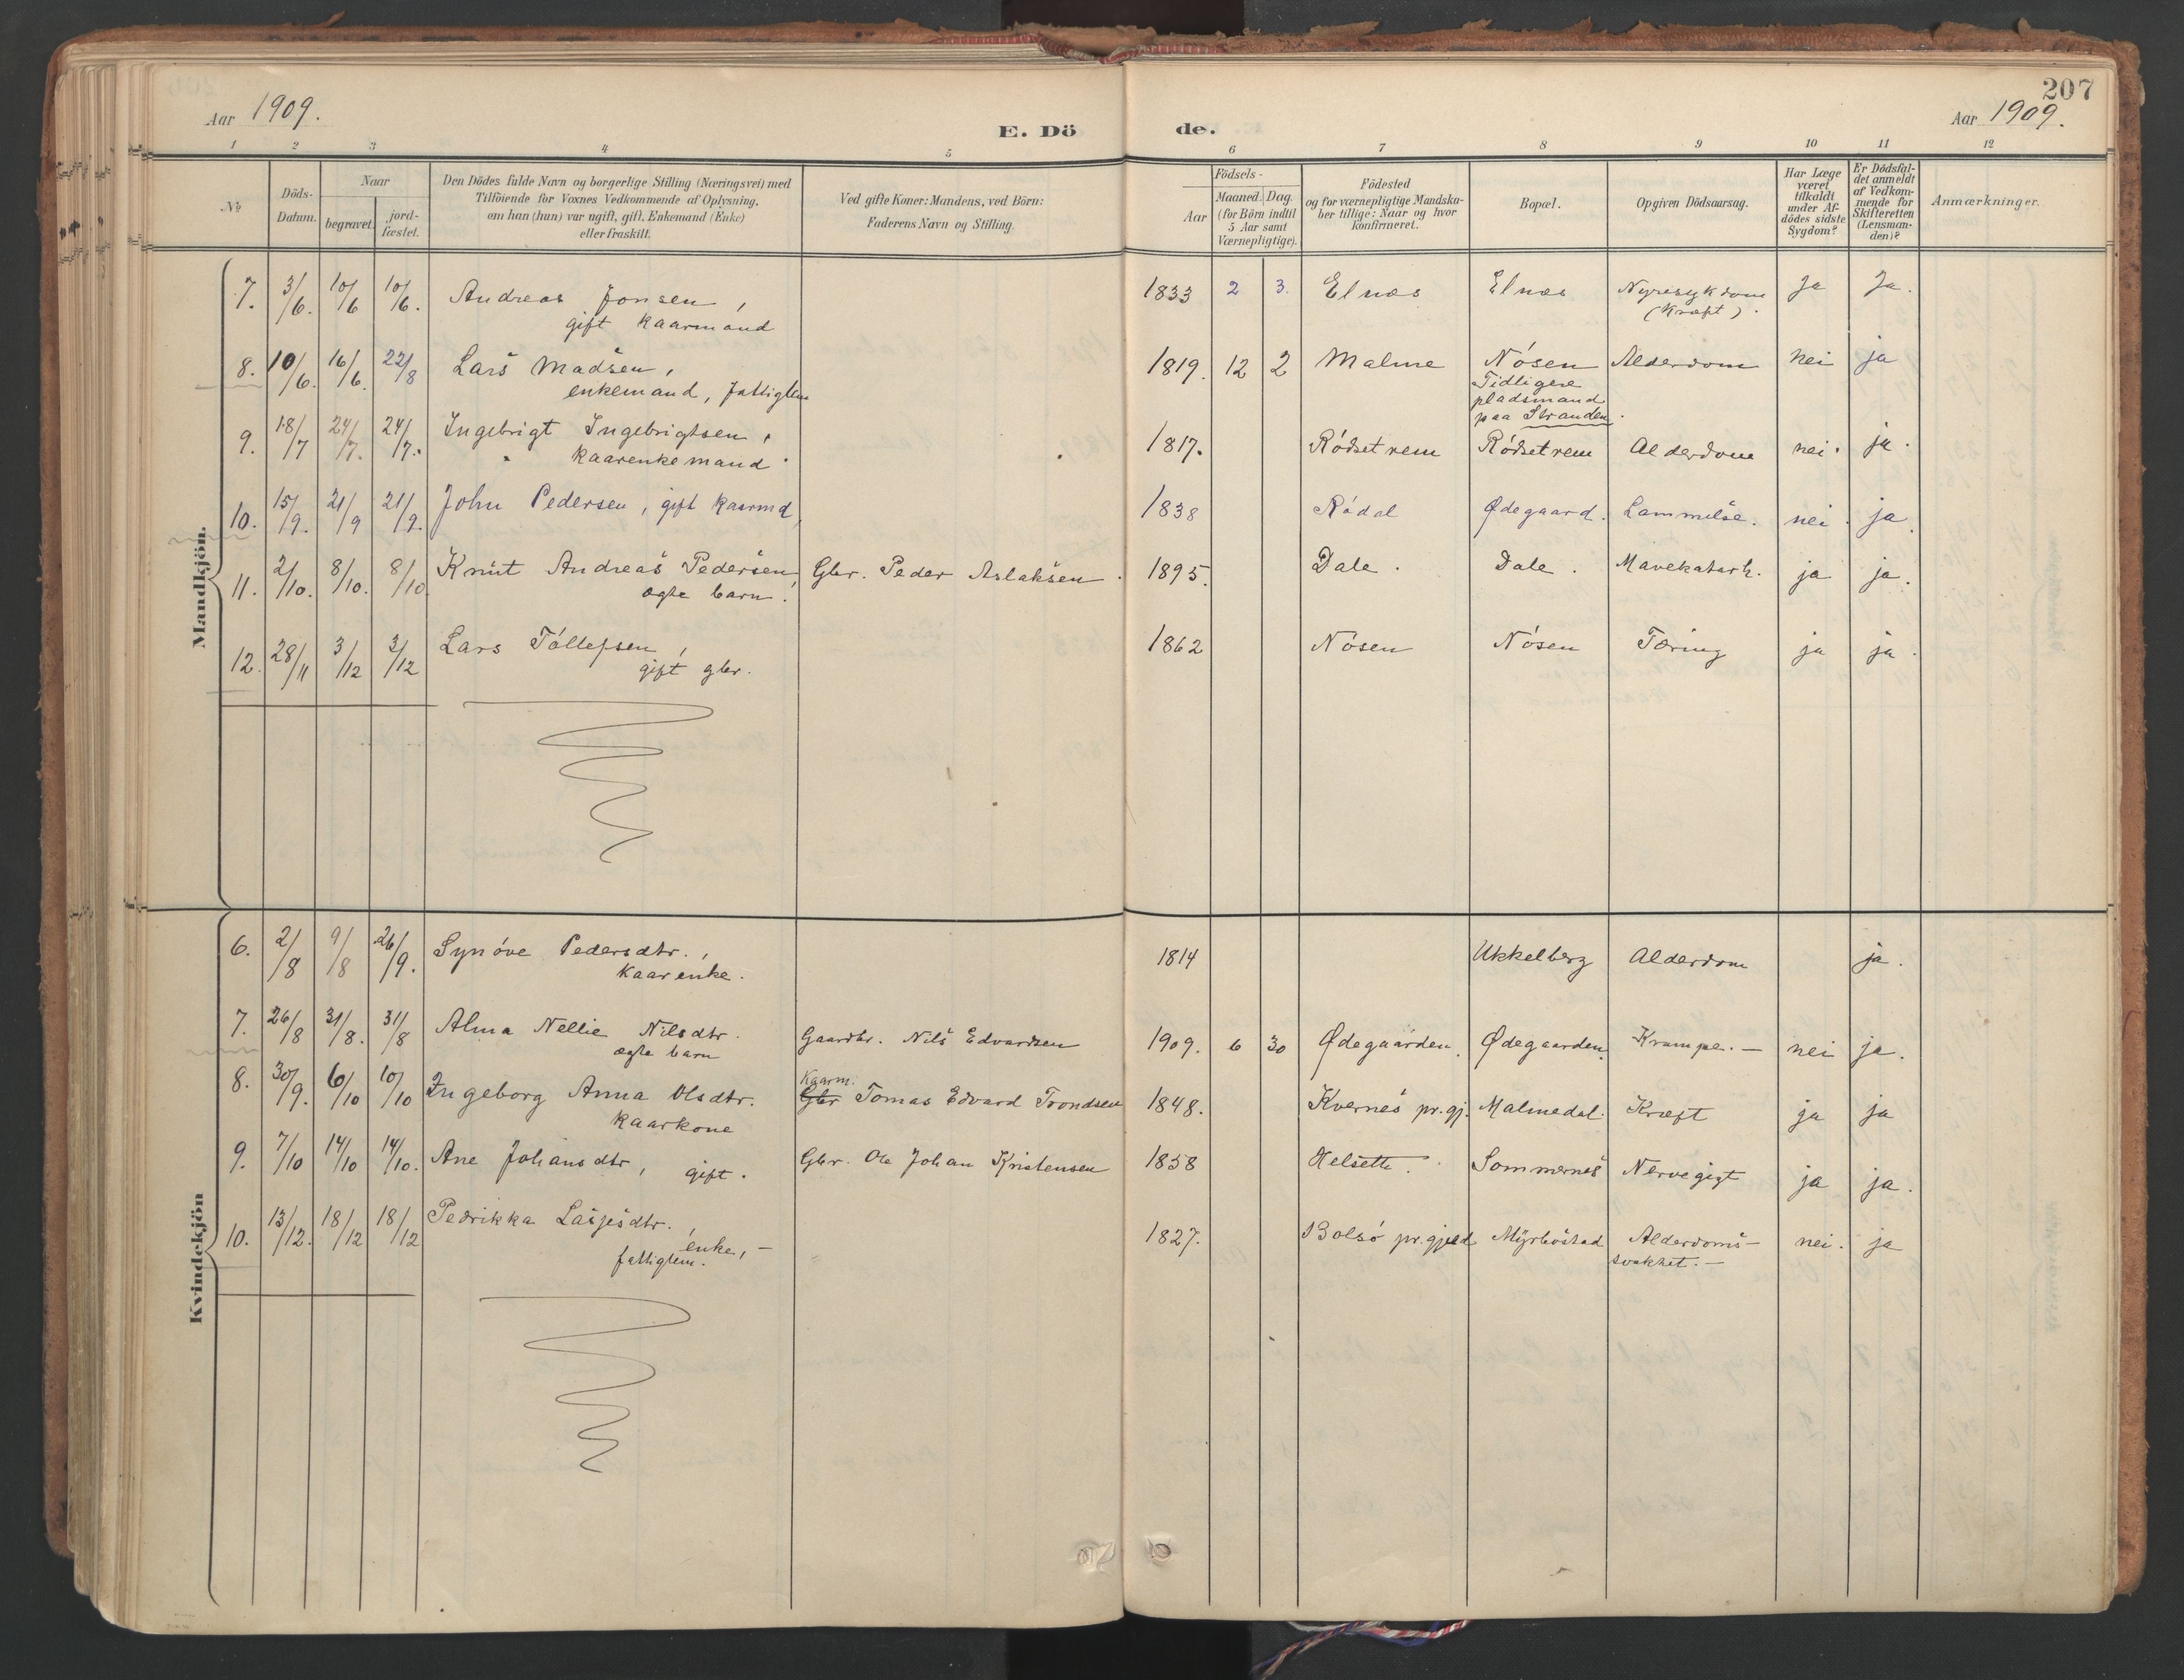 207
Aar 1909.
E. Dö de.
Aar 1909.
1 2 3 4 5 6 7 8 9 10 11 12
No
Döds-Datum.
Naar
begravet.
jord-fæstet.
Den Dödes fulde Navn og borgerlige Stilling (Næringsvei) med
Tilföiende for Voxnes Vedkommende af Oplysning,
om han (hun) var ugift, gift, Enkemand (Enke)
eller fraskilt.
Ved gifte Koner: Mandens, ved Börn:
Faderens Navn og Stilling.
Födsels-
Aar
Maaned. Dag.
(for Börn indtil
5 Aar samt
Værnepligtige).
Födested
og for værnepligtige Mandska-
ber tillige: Naar og hvor
konfirmeret.
Bopæl.
Opgiven Dödsaarsag.
Har Læge
været
tilkaldt
under Af-
dödes sidste
Sygdom?
Er Dödsfal-
det anmeldt
af Vedkom-
mende for
Skifteretten
(Lensman-
den)?
Anmærkninger.
Mandkjön.
7. 3/6. 10/6 10/6. Andreas Jonsen, 1833 2 3. Elnæs Elnæs Nyresykdom Ja Ja.
gift kaarmand (Kræft).
8. 10/6. 16/6. 22/8 Lars Madsen, 1819. 12 2 Malme Nósen Alderdom nei ja
enkemand, fattiglem Tidligere
pladsmand
paa Stranden.
9. 18/7 24/7. 24/7. Ingebrigt Ingebrigtsen, 1817. Ródsetrem Ródsetrem Alderdom nei. ja.
kaarenkemand
10. 15/9. 21/9 21/9. John Pedersen, gift kaarmd, 1838 Ródal Ødegaard. Lammelse. nei. ja.
11. 2/10. 8/10. 8/10. Knut Andreas Pedersen, Gbr. Peder Aslaksen. 1895. Dale. Dale. Mavekatarh. ja ja.
ægte barn.
12. 28/11 3/12 3/12 Lars Tóllefsen, 1862 Nósen Nósen Tæring ja ja.
gift gbr.
Kvindekjön
6. 2/8 9/8 26/9. Synóve Pedersdtr., 1814 Ukkelberg Alderdom ja.
kaarenke.
7. 26/8 31/8. 31/8 Alma Nellie Nilsdtr. Gaardbr. Nils Edvardsen 1909. 6 30 Ødegaarden. Ødegaarden. Krampe.— nei ja.
ægte barn
8. 30/9. 6/10 10/10 Ingeborg Anna Olsdtr. Kaarm. Gbr Tomas Edvard Trondsen 1848. Kvernes pr.gj. Malmedal. Kræft ja ja
kaarkone
9. 7/10 14/10 14/10. Ane Johansdtr, gift. Gbr. Ole Johan Kristensen 1858 Helsette. Sommernes Nervegigt ja ja.
10. 13/12. 18/12 18/12 Pedrikka Lasjesdtr., 1827. Bolsó pr.gjeld Myrbóstad Alderdoms- nei. ja
enke,— svakhet.—
fattiglem.